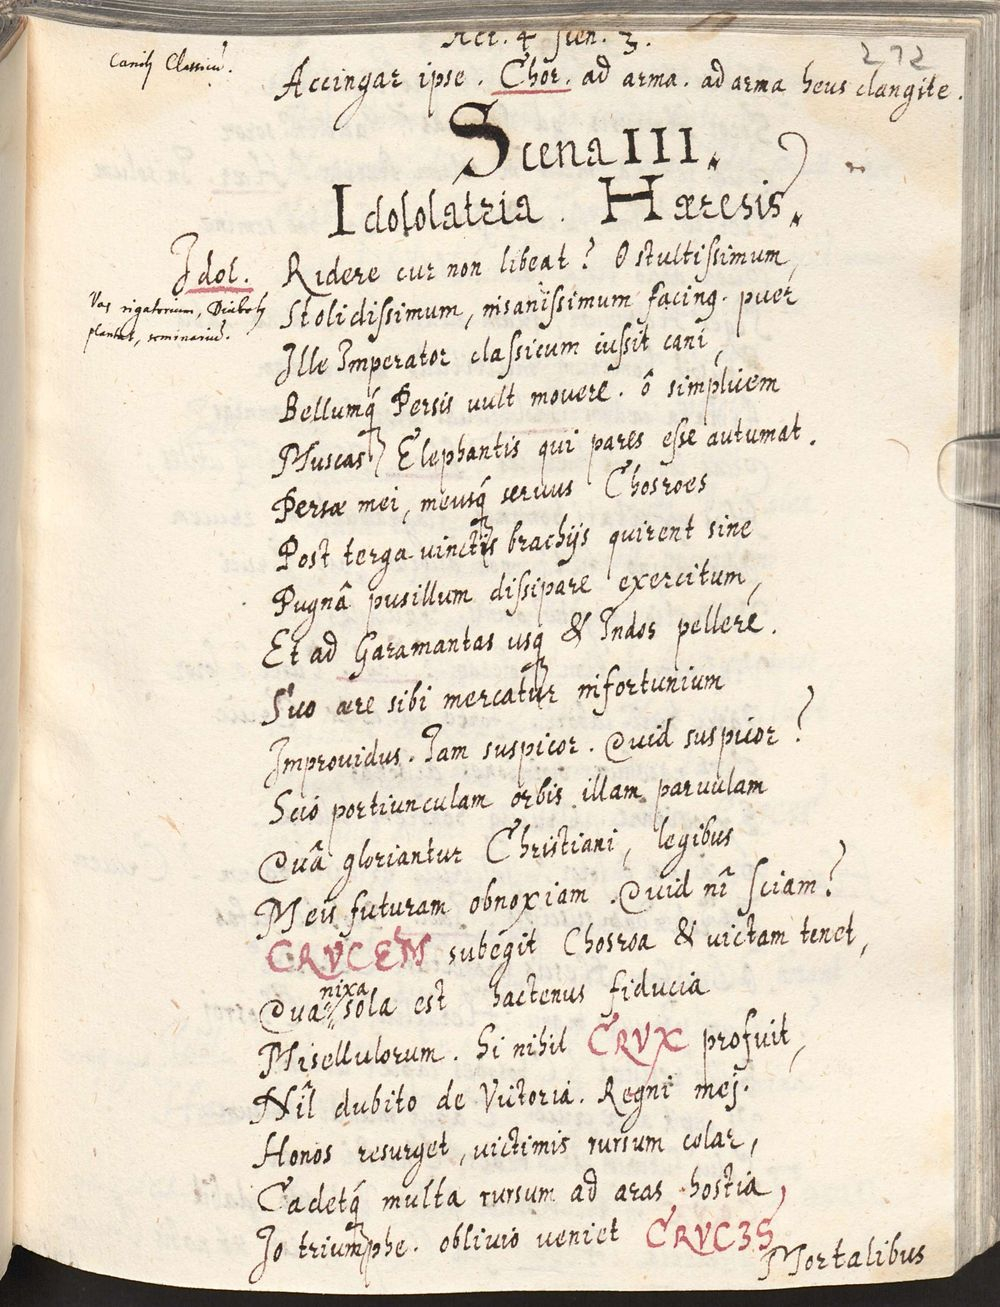 Act. 4 scen. 3.
272
Canitʒ Classicũ.
Accingar ipse. Chor. ad arma. ad arma heus clangite.
Scena III.
Idololatria. Hæresis.
Idol. Ridere cur non libeat? O stultissimum,
Vas rigatorium, Diaboli
plantet, seminariũ.
Stolidissimum, insanissimum facinq. puer
Ille Imperator classicum iussit cani,
Bellumq́ Persis vult movere. ô simplicem
Muscas Elephantis qui pares esse autumat.
Persæ mei, meusq́ servus Chosroes
Post terga vinctis brachijs quirent sine
Pugnâ pusillum dissipare exercitum,
Et ad Garamantas usq & Indos pellere.
Suo ære sibi mercatur infortunium
Improvidus. Iam suspicor. Quid suspicor?
Scio portiunculam orbis illam parvulam
Quâ gloriantur Christiani, legibus
Meis futuram obnoxiam. Quid nî sciam?
CRVCEM subegit Chosroa & victam tenet,
nixa
Qua sola est hactenus fiducia
Misellulorum. Si nihil CRVX profuit,
Nîl dubito de Victoria. Regni mej.
Honos resurget, victimis rursum colar,
Cadetq́ multa rursum ad aras hostia,
Io triumphe. oblivio veniet CRVCIS
Mortalibus